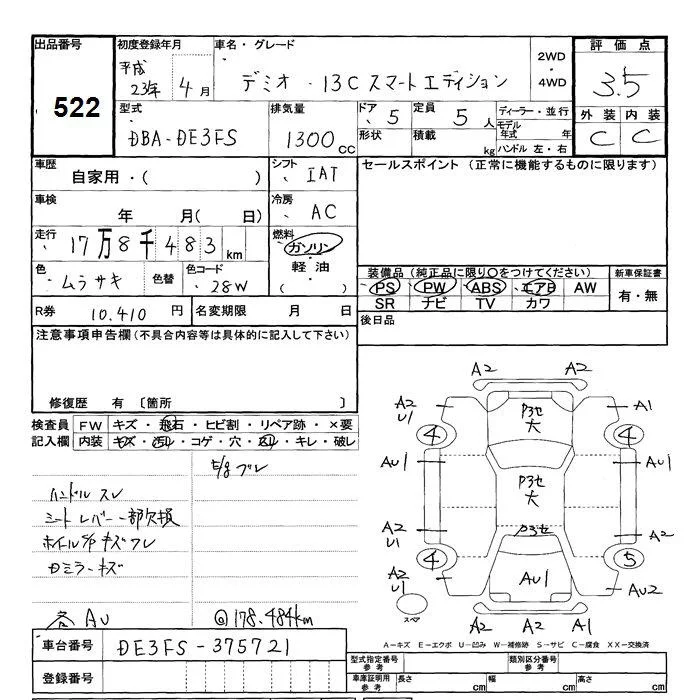 出品番号 初度登録年月 車名・グレード 評価点
522 平成 23年 4月 デミオ ・13C スマートエディション 2WD ・ 4WD 3.5
型式 排気量 ドア 5 定員 5人 ディーラー・並行 外装 内装
DBA-DE3FS 1300cc 形状 積載 kg モデル年式 年 ハンドル 左・右 C C
車歴 自家用・( ) シフト IAT セールスポイント (正常に機能するものに限ります)
車検 年 月( 日) 冷房 AC
走行 17万8千483km 燃料 ガソリン
軽油
( )
色 ムラサキ 色替 色コード 28W 装備品(純正品に限り○をつけてください) 新車保証書
PS PW ABS エアB AW 有・無
SR ナビ TV カワ
R券 10,410円 名変期限 月 日 後日品
注意事項申告欄(不具合内容等は具体的に記入して下さい)
修復歴 有 〔箇所 〕
検査員 FW キズ・飛石・ヒビ割・リペア跡・×要
記入欄 内装 キズ・汚レ・コゲ・穴・凹レ・キレ・破レ
E/g ブレ
ハンドル スレ
シートレバー一部欠損
ホイルキズフレ
ロミラーキズ
各 AU @178,484km
A2 A2
A2 U1 A1
4 4
P3セ 大
AU1 AU1
P3セ 大
A2 U1 A2
P3セ
4 5
A2 U1 AU1 AU2
スペア
A2 A2 A1
A-キズ E-エクボ U-凹み W-補修跡 S-サビ C-腐食 XX-交換済
車台番号 DE3FS-375721
型式指定番号 参考 類別区分番号 参考
登録番号 車庫証明用 参考 長さ cm 幅 cm 高さ cm